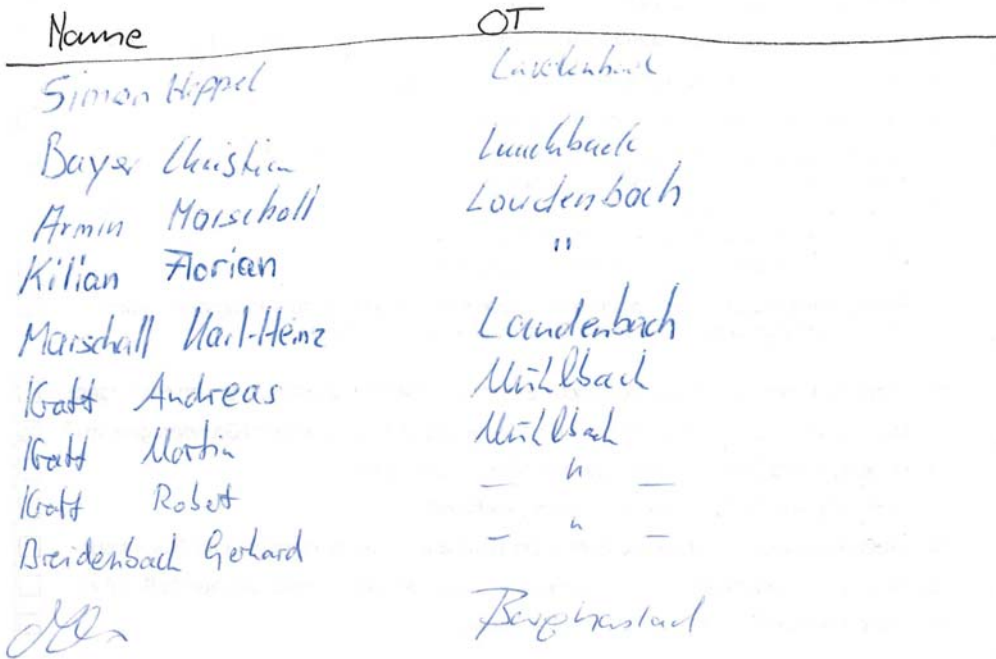 Name OT
Simon Heppel Laudenbach
Bayer Christian Laudenbach
Armin Marschall Laudenbach
Kilian Florian "
Marschall Karl-Heinz Laudenbach
Kratt Andreas Mühlbach
Kratt Martin Mühlbach
Kratt Robert – " –
Breidenbach Gerhard – " –